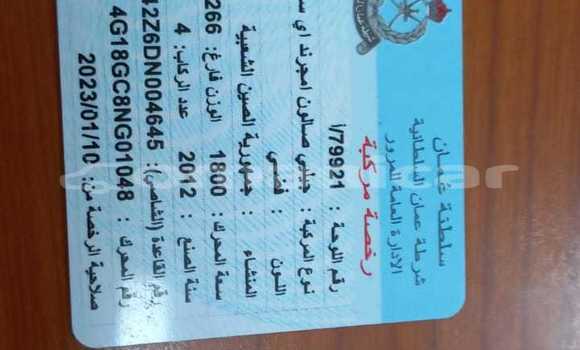 سلطنة عمان
شرطة عمان السلطانية
الادارة العامة للمرور
رخصة مركبة
رقم اللوحة : 79921/أ
نوع المركبة : جيلي صالون امجرند اي
اللون : فضي
المنشاء : جمهورية الصين الشعبية
سعة المحرك : 1800 الوزن فارغ: 266
سنة الصنع : 2012 عدد الركاب: 4
رقم القاعدة (الشاصي): 42Z6DN004645
رقم المحرك : 4G18GC8NG01048
صلاحية الرخصة من: 2023/01/10